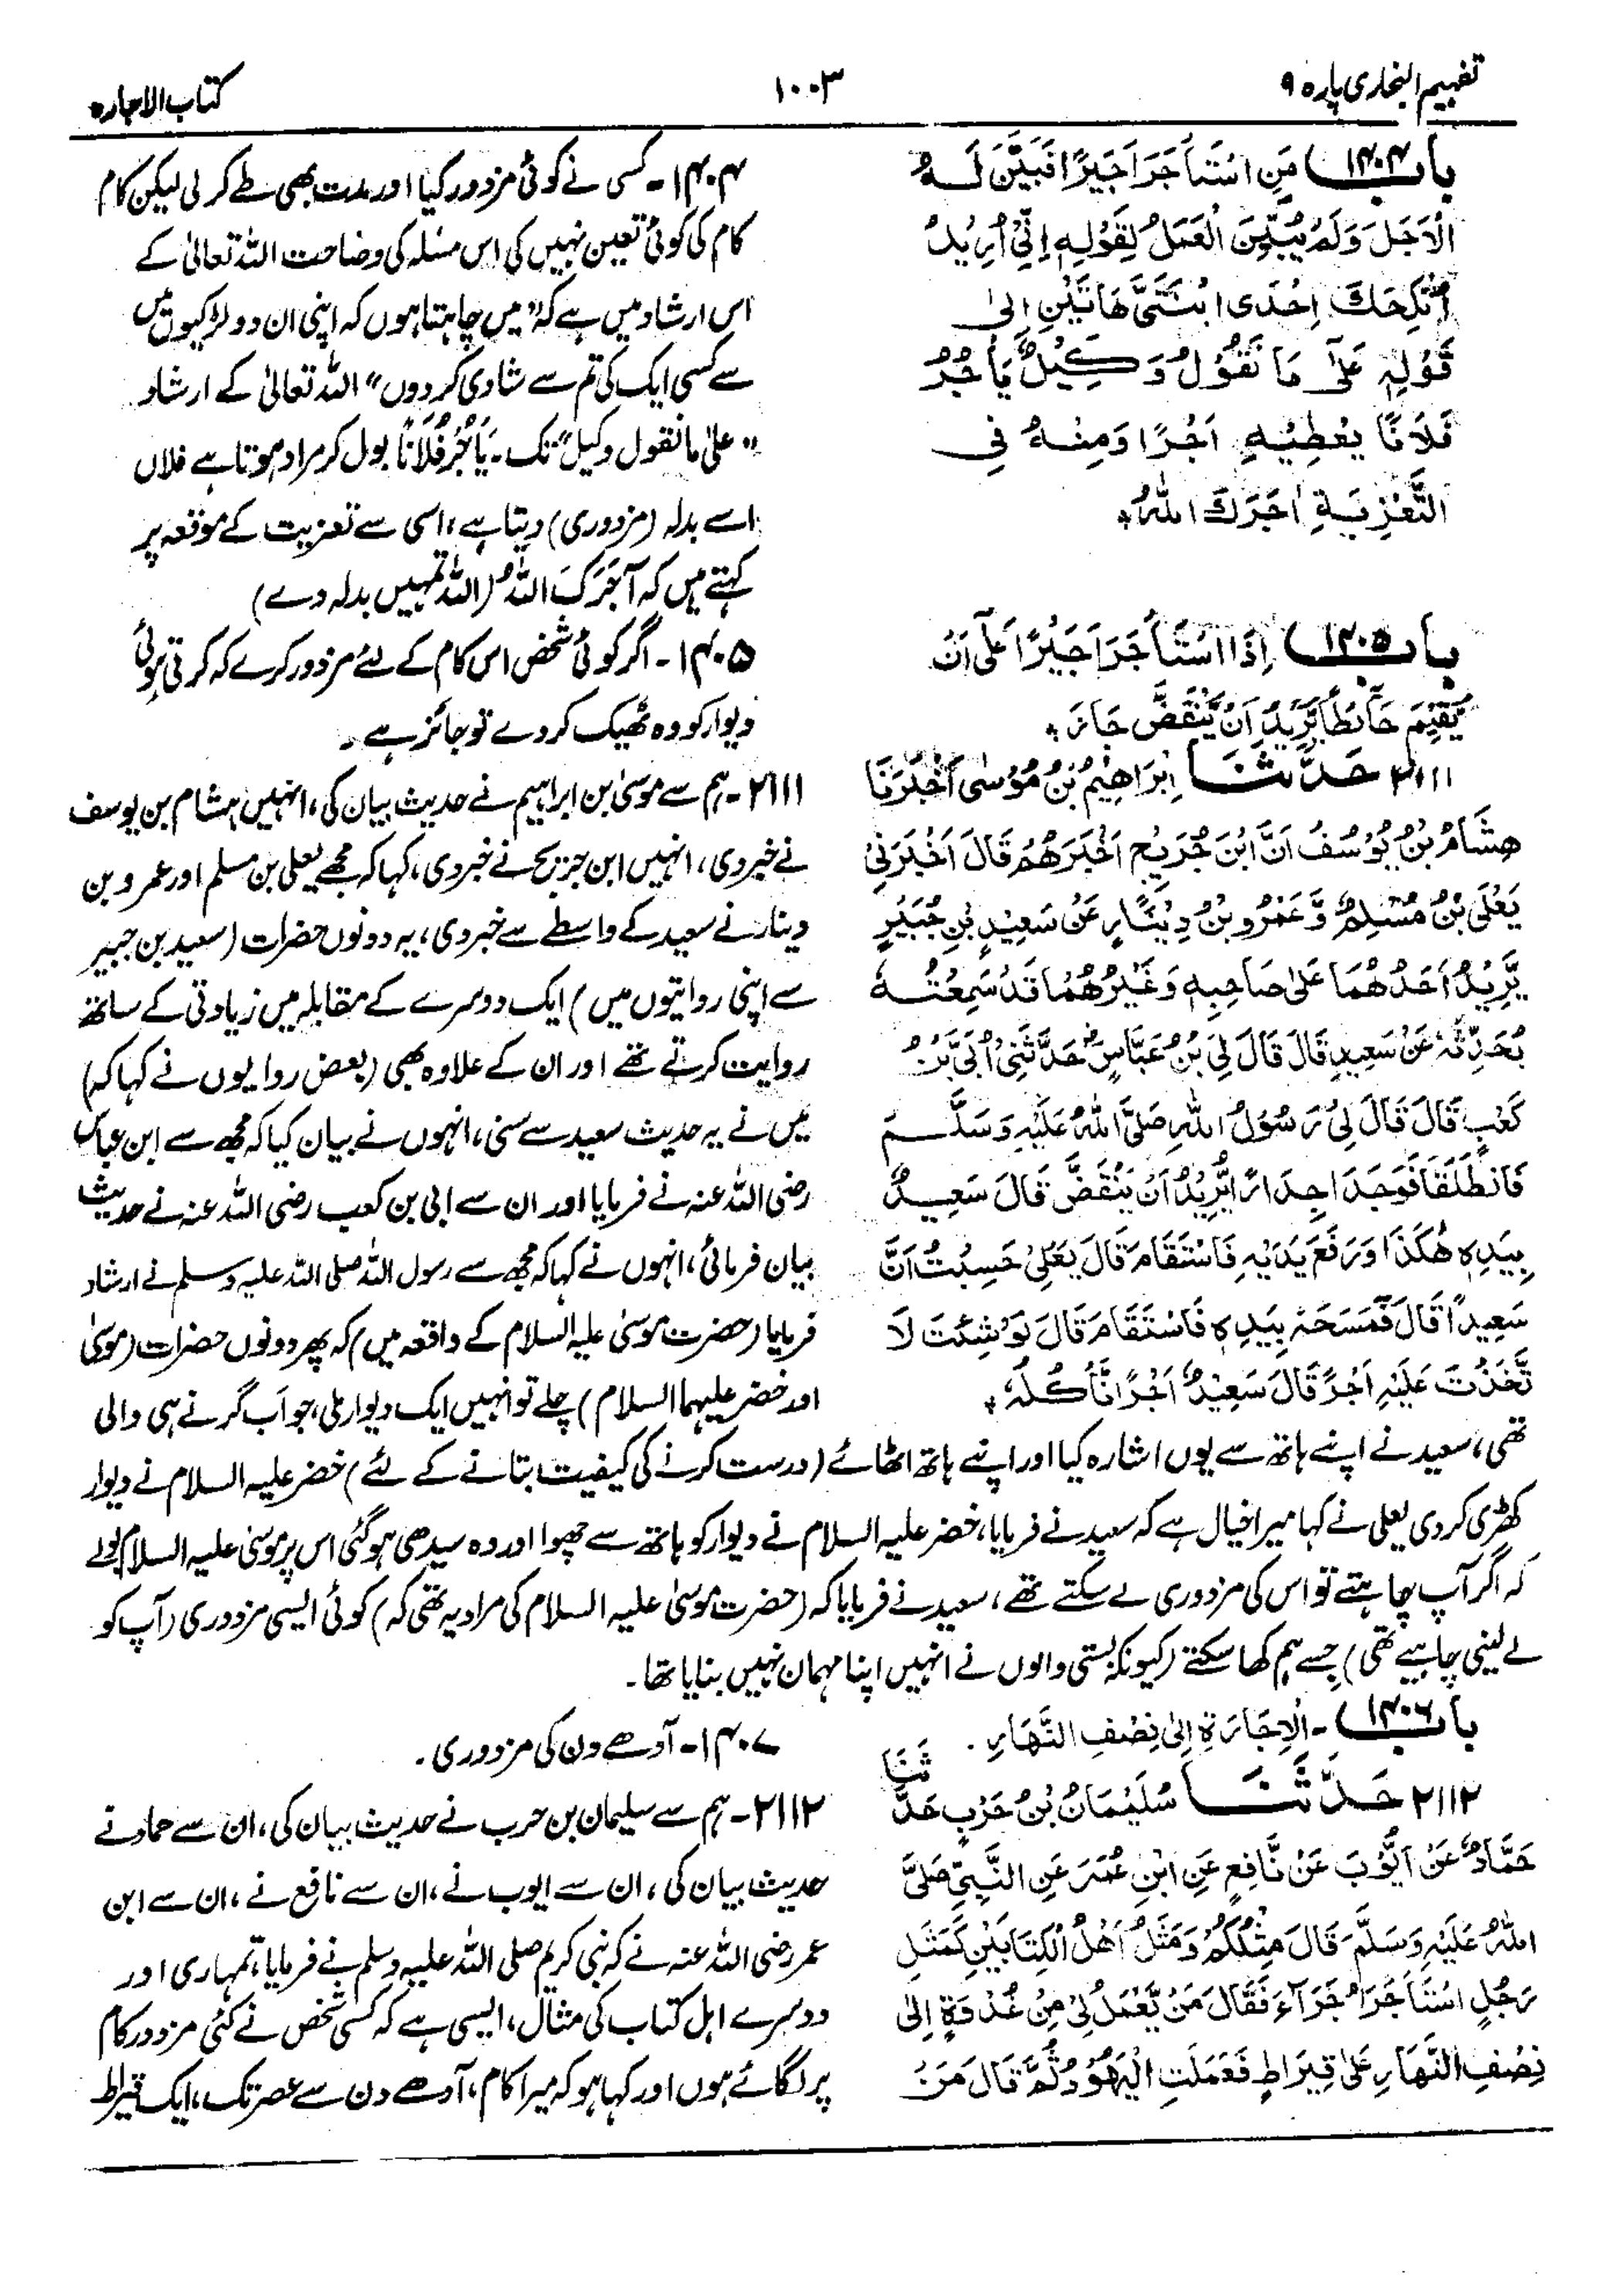 تفہیم البخاری پارہ ۹
۱۰۰۳
کتاب الاجارہ
باب ۱۴۰۴ مَنِ اسْتَأْجَرَ اَجِيْرًا فَبَيَّنَ لَهُ
الْاَجَلَ وَلَمْ يُبَيِّنِ الْعَمَلُ لِقَوْلِهٖ اِنِّيْ اُرِيْدُ
اَنْ اُنْكِحَكَ اِحْدَى ابْنَتَيَّ هَاتَيْنِ اِلٰى
قَوْلِهٖ عَلٰى مَا نَقُوْلُ وَكِيْلٌ يَأْجُرُ
فُلَانًا يُعْطِيْهِ اَجْرًا وَمِنْهُ فِي
التَّعْزِيَةِ اٰجَرَكَ اللهُ
۱۴۰۴- کسی نے کوئی مزدور کیا اور مدت بھی طے کر لی لیکن کام
کام کی کوئی تعین نہیں کی اس مسئلہ کی وضاحت اللہ تعالیٰ کے
اس ارشاد میں ہے کہ "میں چاہتا ہوں کہ اپنی ان دو لڑکیوں میں
سے کسی ایک کی تم سے شادی کر دوں" اللہ تعالیٰ کے ارشاد
"علیٰ ما نقول وکیل" تک۔ یَأْجُرُ فُلَانًا بول کر مراد ہوتا ہے فلاں
اسے بدلہ (مزدوری) دیتا ہے، اسی سے تعزیت کے موقعہ پر
کہتے ہیں کہ آجَرَکَ اللہُ (اللہ تمہیں بدلہ دے)
باب ۱۴۰۵ اِذَا اسْتَأْجَرَ اَجِيْرًا عَلٰٓى اَنْ
يُّقِيْمَ حَآئِطًا يُّرِيْدُ اَنْ يَّنْقَضَّ جَازَ
۱۴۰۵- اگر کوئی شخص اس کام کے لئے مزدور کرے کہ گرتی ہوئی
دیوار کو وہ ٹھیک کر دے تو جائز ہے۔
۲۱۱۱ حَدَّثَنَا اِبْرَاهِيْمُ بْنُ مُوْسٰى اَخْبَرَنَا
هِشَامُ بْنُ يُوْسُفَ اَنَّ ابْنَ جُرَيْجٍ اَخْبَرَهُمْ قَالَ اَخْبَرَنِيْ
يَعْلَى بْنُ مُسْلِمٍ وَّعَمْرُو بْنُ دِيْنَارٍ عَنْ سَعِيْدِ بْنِ جُبَيْرٍ
يَّزِيْدُ اَحَدُهُمَا عَلٰى صَاحِبِهٖ وَغَيْرُهُمَا قَدْ سَمِعْتُهٗ
يُحَدِّثُهٗ عَنْ سَعِيْدٍ قَالَ قَالَ لِيَ بْنُ عَبَّاسٍ حَدَّثَنِيْ اُبَيُّ بْنُ
كَعْبٍ قَالَ قَالَ لِيْ رَسُوْلُ اللهِ صَلَّى اللهُ عَلَيْهِ وَسَلَّمَ
فَانْطَلَقَا فَوَجَدَا جِدَارًا يُّرِيْدُ اَنْ يَنْقَضَّ قَالَ سَعِيْدٌ
بِيَدِهٖ هٰكَذَا وَرَفَعَ يَدَيْهِ فَاسْتَقَامَ قَالَ يَعْلٰى حَسِبْتُ اَنَّ
سَعِيْدًا قَالَ فَمَسَحَهٗ بِيَدِهٖ فَاسْتَقَامَ قَالَ لَوْ شِئْتَ لَا
تَّخَذْتَ عَلَيْهِ اَجْرًا قَالَ سَعِيْدٌ اَجْرًا نَّأْكُلُهٗ
۲۱۱۱- ہم سے موسیٰ بن ابراہیم نے حدیث بیان کی، انہیں ہشام بن یوسف
نے خبر دی، انہیں ابن جریج نے خبر دی، کہا کہ مجھے یعلی بن مسلم اور عمرو بن
دینار نے سعید کے واسطے سے خبر دی، یہ دونوں حضرات (سعید بن جبیر
سے اپنی روایتوں میں) ایک دوسرے کے مقابلہ میں زیادتی کے ساتھ
روایت کرتے تھے اور ان کے علاوہ بھی (بعض راویوں نے کہا کہ)
میں نے یہ حدیث سعید سے سنی، انہوں نے بیان کیا کہ مجھ سے ابن عباس
رضی اللہ عنہ نے فرمایا اور ان سے ابی بن کعب رضی اللہ عنہ نے حدیث
بیان فرمائی، انہوں نے کہا کہ مجھ سے رسول اللہ صلی اللہ علیہ وسلم نے ارشاد
فرمایا (حضرت موسیٰ علیہ السلام کے واقعہ میں) کہ پھر دونوں حضرات (موسیٰ
اور خضر علیہما السلام) چلے تو انہیں ایک دیوار ملی، جو اَب گرنے ہی والی
تھی، سعید نے اپنے ہاتھ سے یوں اشارہ کیا اور اپنے ہاتھ اٹھائے (درست کرنے کی کیفیت بتانے کے لئے) خضر علیہ السلام نے دیوار
کھڑی کر دی یعلی نے کہا میرا خیال ہے کہ سعید نے فرمایا، خضر علیہ السلام نے دیوار کو ہاتھ سے چھوا اور وہ سیدھی ہوگئی اس پر موسیٰ علیہ السلام بولے
کہ اگر آپ چاہتے تو اس کی مزدوری لے سکتے تھے، سعید نے فرمایا کہ (حضرت موسیٰ علیہ السلام کی مراد یہ تھی کہ) کوئی ایسی مزدوری (آپ کو
لے لینی چاہیے تھی) جسے ہم کھا سکتے (کیونکہ بستی والوں نے انہیں اپنا مہمان نہیں بنایا تھا۔
باب ۱۴۰۶- الْاِجَارَةِ اِلٰى نِصْفِ النَّهَارِ۔
۱۴۰۷- آدھے دن کی مزدوری۔
۲۱۱۲ حَدَّثَنَا سُلَيْمَانُ بْنُ حَرْبٍ حَدَّثَنَا
حَمَّادٌ عَنْ اَيُّوْبَ عَنْ نَّافِعٍ عَنِ ابْنِ عُمَرَ عَنِ النَّبِيِّ صَلَّى
اللهُ عَلَيْهِ وَسَلَّمَ قَالَ مِثْلُكُمْ وَمَثَلُ اَهْلُ الْكِتَابَيْنِ كَمَثَلِ
رَجُلٍ اسْتَأْجَرَ اُجَرَآءَ فَقَالَ مَنْ يَّعْمَلُ لِيْ مِنْ غُدْوَةٍ اِلٰى
نِصْفِ النَّهَارِ عَلٰى قِيْرَاطٍ فَعَمِلَتِ الْيَهُوْدُ ثُمَّ قَالَ مَنْ
۲۱۱۲- ہم سے سلیمان بن حرب نے حدیث بیان کی، ان سے حماد نے
حدیث بیان کی، ان سے ایوب نے، ان سے نافع نے، ان سے ابن
عمر رضی اللہ عنہ نے کہ نبی کریم صلی اللہ علیہ وسلم نے فرمایا، تمہاری اور
دوسرے اہل کتاب کی مثال، ایسی ہے کہ کسی شخص نے کئی مزدور کام
پر لگائے ہوں اور کہا ہو کہ میرا کام، آدھے دن سے عصر تک، ایک قیراط